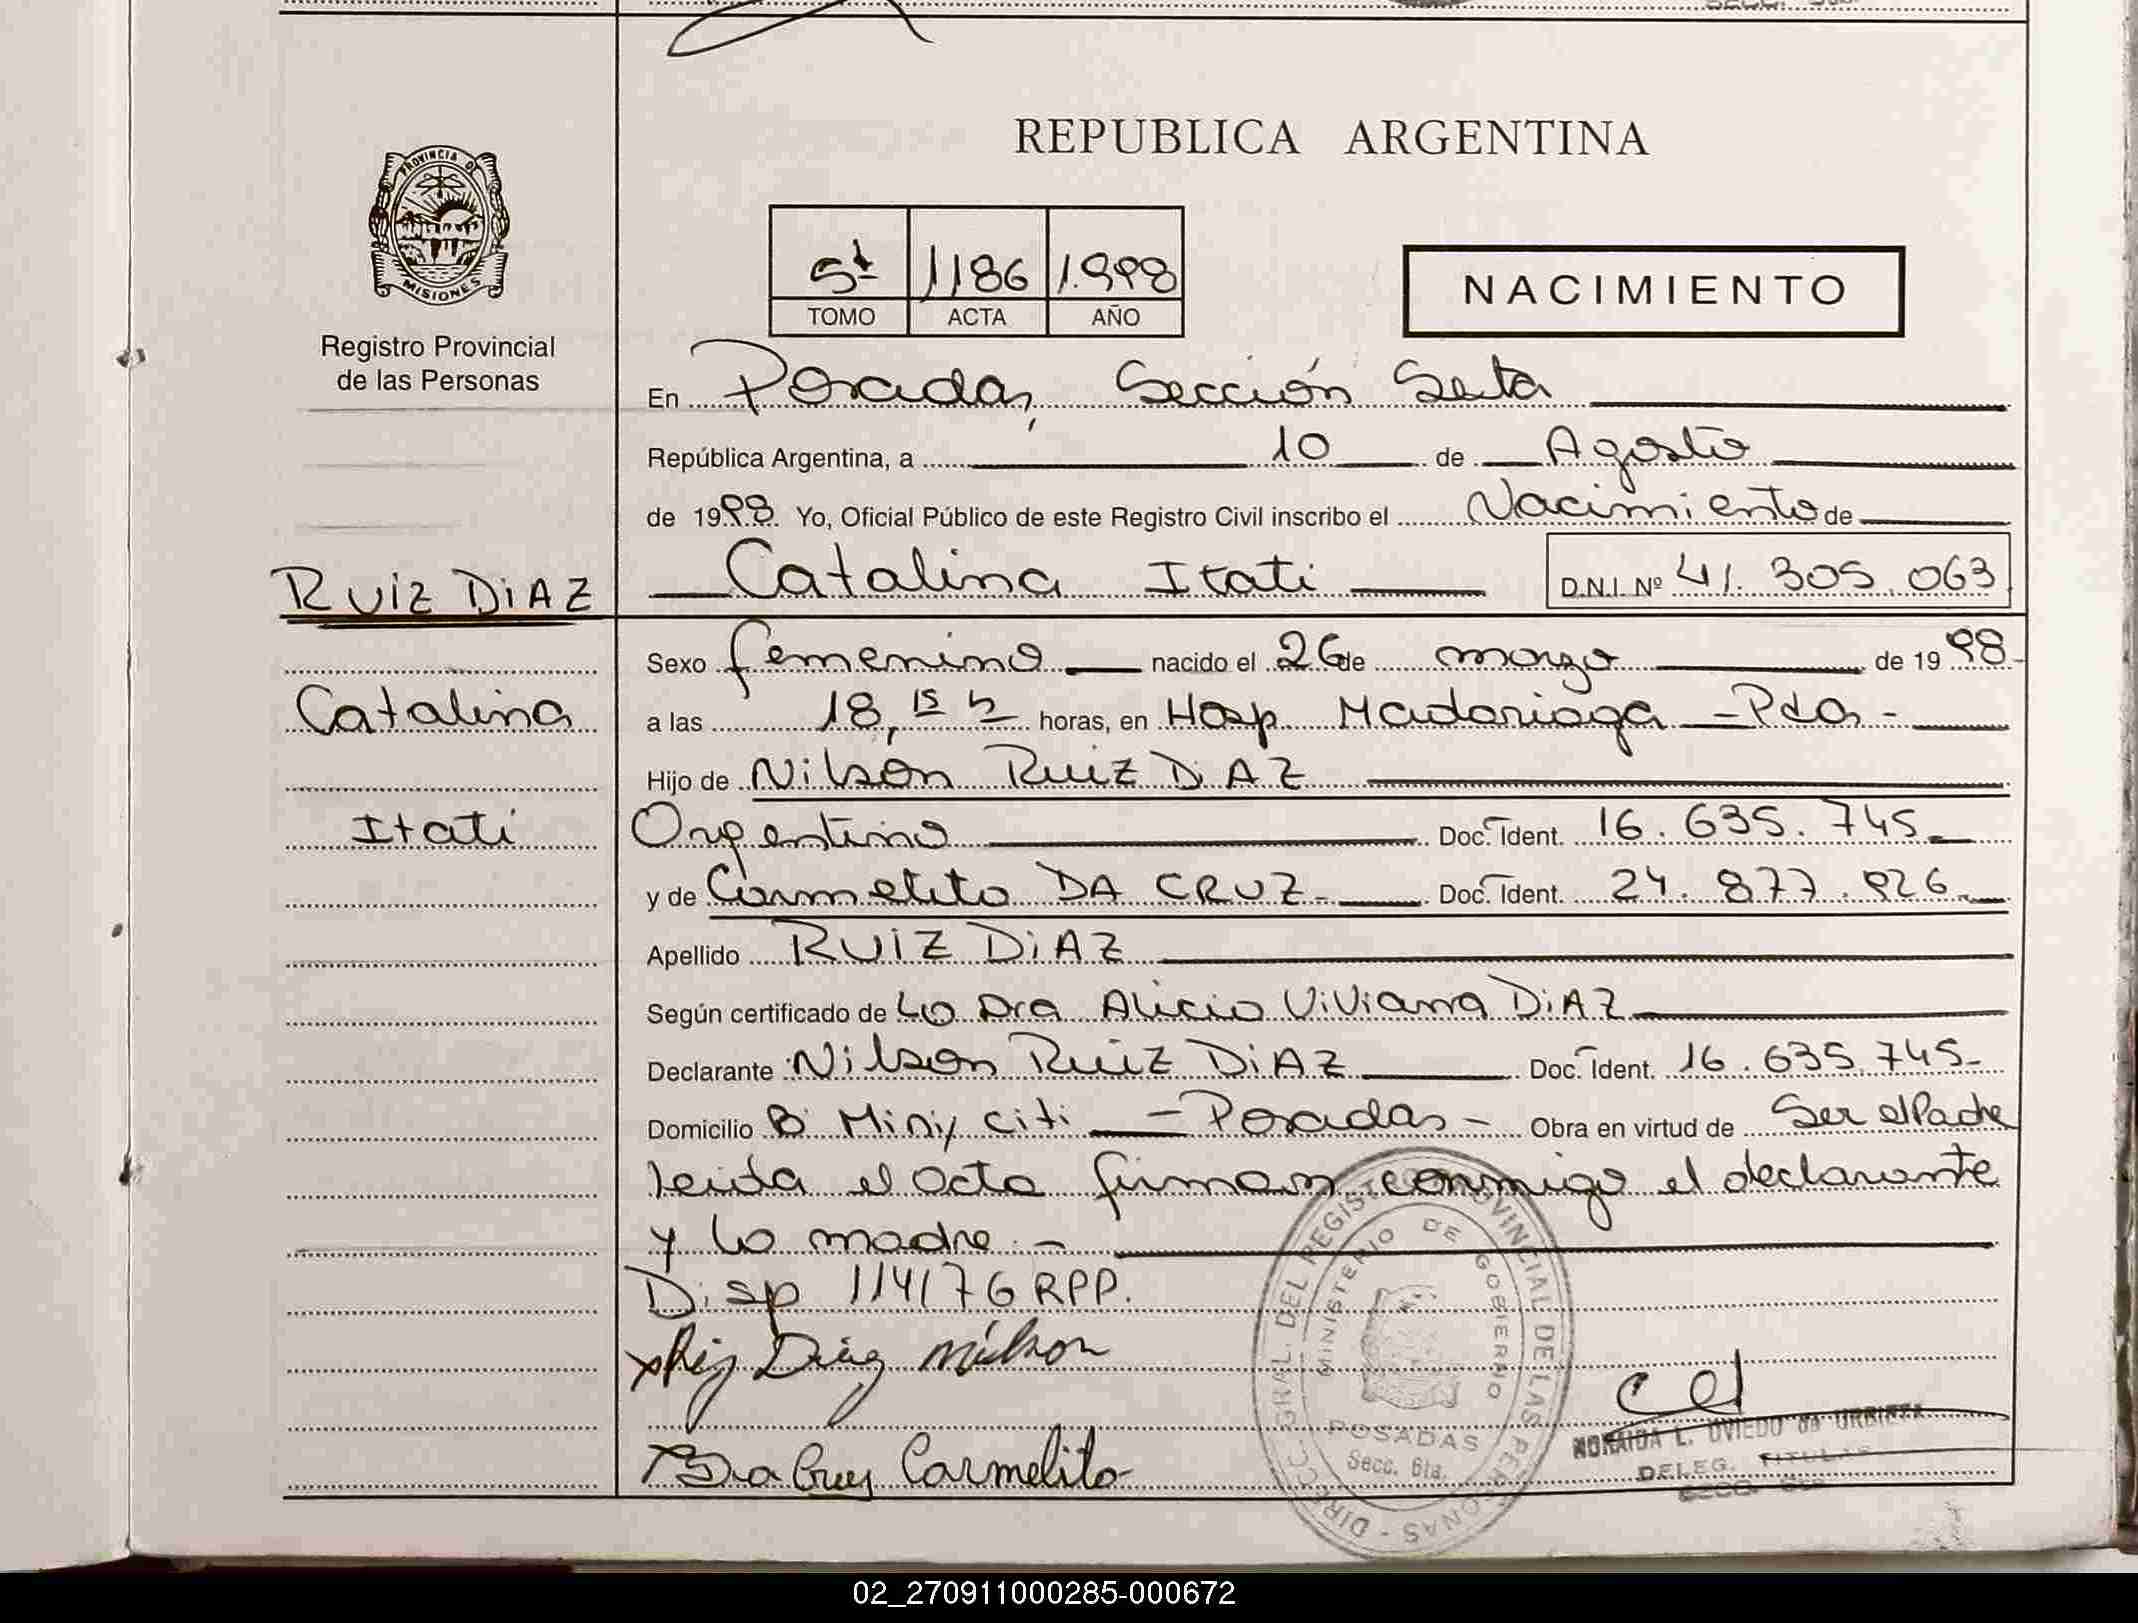 REPUBLICA ARGENTINA
PROVINCIA DE
MISIONES
Registro Provincial
de las Personas
5t 1186 1.998
TOMO ACTA AÑO
NACIMIENTO
En Posadas, Sección Sexta
República Argentina, a 10 de Agosto
de 1998. Yo, Oficial Público de este Registro Civil inscribo el Nacimiento de
Catalina Itati D.N.I. Nº 41.305.063
RUIZ DIAZ
Catalina
Itati
Sexo femenino nacido el 26 de marzo de 1998-
a las 18,15 h horas, en Hosp Madariaga - Pdas -
Hijo de Nilson Ruiz DIAZ
Argentino Doc. Ident. 16.635.745
y de Carmelita DA CRUZ Doc. Ident. 24.877.926
Apellido RUIZ DIAZ
Según certificado de La Dra Alicia Viviana DIAZ
Declarante Nilson Ruiz DIAZ Doc. Ident. 16.635.745-
Domicilio Bº Miniy Citi - Posadas - Obra en virtud de Ser el Padre
leida el acta firman conmigo el declarante
y la madre -
Disp 114/76 RPP.
Ruiz Diaz nilson
Da Cruz Carmelita
DIRECC. GRAL. DEL REGISTRO PROVINCIAL DE LAS PERSONAS
MINISTERIO DE GOBIERNO
POSADAS
Secc. 6ta.
L. OVIEDO de URBIETA
DELEG. TITULAR
SECC. 6ta
02_270911000285-000672